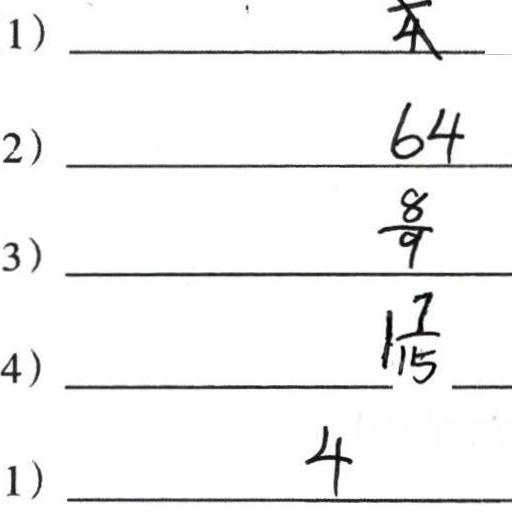 1)
2) 64
3) 8/9
4) 1 7/15
1) 4